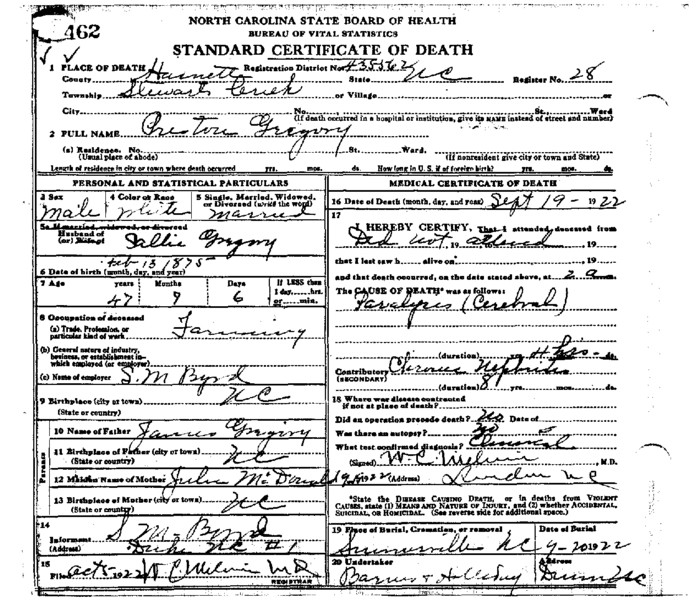 462
NORTH CAROLINA STATE BOARD OF HEALTH
BUREAU OF VITAL STATISTICS
STANDARD CERTIFICATE OF DEATH
1 PLACE OF DEATH Registration District No.
County Harnett State NC Register No. 28
Township Stewarts Creek or Village or
City No. St. Ward
(If death occurred in a hospital or institution, give its NAME instead of street and number)
2 FULL NAME Preston Gregory
(a) Residence. No. St. Ward.
(Usual place of abode) (If nonresident give city or town and State)
Length of residence in city or town where death occurred yrs. mos. ds. How long in U.S. if of foreign birth? yrs. mos. ds.
PERSONAL AND STATISTICAL PARTICULARS
3 Sex 4 Color or Race 5 Single, Married, Widowed, or Divorced (write the word)
Male White Married
5a Married, widowed, or divorced
Husband of
(or) Wife of Sallie Gregory
Feb 13 1875
6 Date of birth (month, day, and year)
7 Age years Months Days If LESS than 1 day, hrs. or min.
47 6
8 Occupation of deceased
(a) Trade, Profession, or particular kind of work Farming
(b) General nature of industry, business, or establishment in which employed (or employer)
(c) Name of employer S.M. Byrd
9 Birthplace (city or town) NC
(State or country)
10 Name of Father James Gregory
11 Birthplace of Father (city or town) NC
(State or country)
12 Maiden Name of Mother Julia McDonald
13 Birthplace of Mother (city or town) NC
(State or country)
Parents
14
Informant S M. Byrd
(Address) Duke NC #1
15
Filed Oct 5 1922 W C Melvin MD
REGISTRAR
MEDICAL CERTIFICATE OF DEATH
16 Date of Death (month, day, and year) Sept 19 - 1922
17
I HEREBY CERTIFY, That I attended deceased from
Did not, 19 attend, 19
that I last saw h alive on 19
and that death occurred, on the date stated above, at 2 a m.
The CAUSE OF DEATH was as follows:
Paralysis (Cerebral)
(duration) yrs. ds.
Contributory Chronic Nephritis
(SECONDARY)
(duration) 8 yrs. mos. ds.
18 Where was disease contracted
if not at place of death?
Did an operation precede death? No Date of
Was there an autopsy? No
What test confirmed diagnosis? Clinical
(Signed) W.C. Melvin, M.D.
1922 (Address) Linden NC
*State the DISEASE CAUSING DEATH, or in deaths from VIOLENT
CAUSES, state (1) MEANS AND NATURE OF INJURY, and (2) whether ACCIDENTAL,
SUICIDAL, or HOMICIDAL. (See reverse side for additional space.)
19 Place of Burial, Cremation, or removal Date of Burial
Summerville NC 9-20 1922
20 Undertaker
Barnes & Holliday Dunn NC